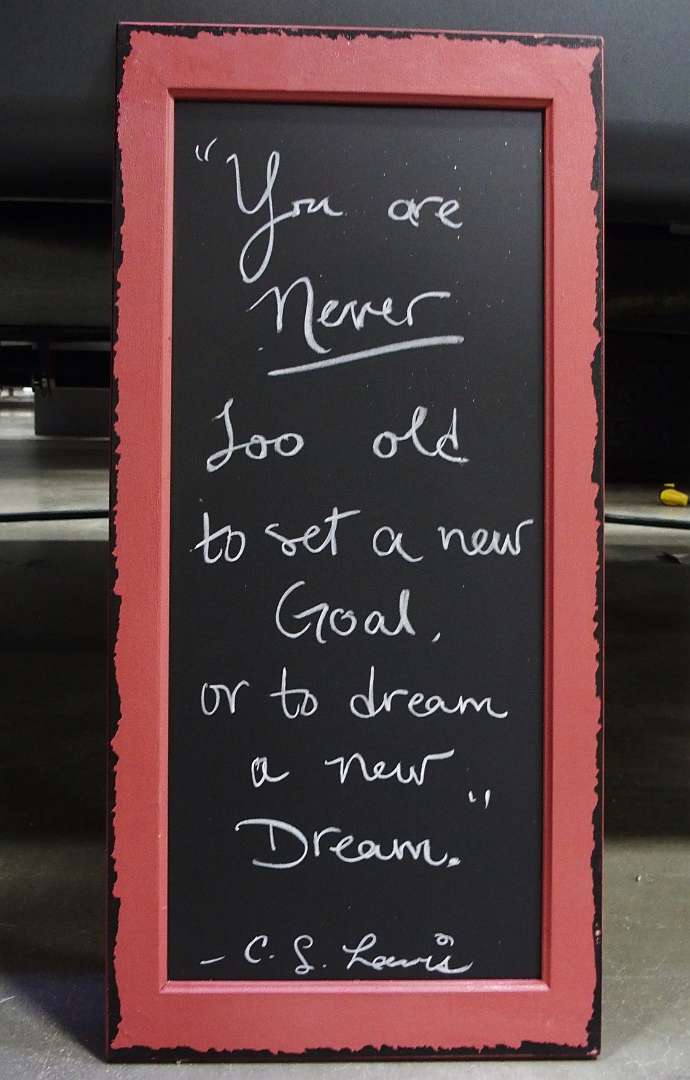 "You are
Never
too old
to set a new
Goal,
or to dream
a new
Dream."
- C. S. Lewis